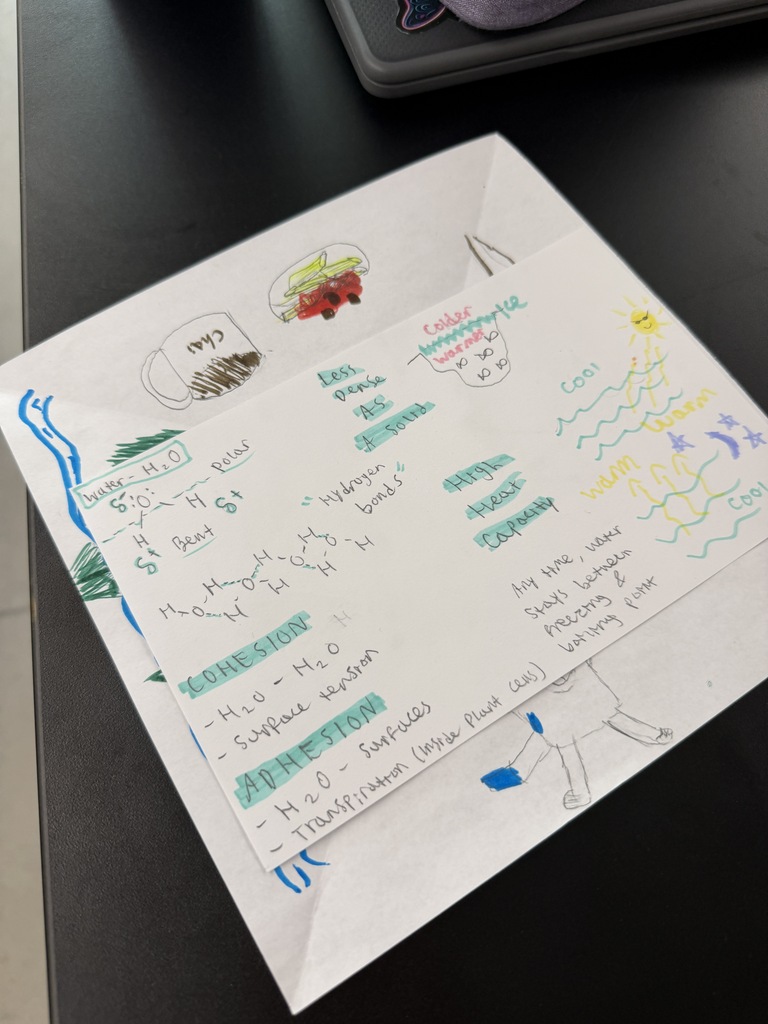 Chai
Water - H2O
Polar
δ-
:O:
H
H
δ+
δ+
Bent
"Hydrogen
bonds"
H
O
H
H
O
H
H
O
H
H
O
H
H
COHESION
- H2O - H2O
- Surface tension
ADHESION
- H2O - Surfaces
- Transpiration (inside plant cells)
Less
Dense
AS
A Solid
Colder
Ice
Warmer
High
Heat
Capacity
Any time, water
stays between
freezing &
boiling point
Cool
Warm
Warm
Cool